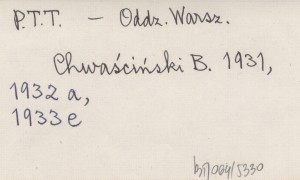 P.T.T. — Oddz. Warsz.
Chwaściński B. 1931,
1932 a,
1933 e